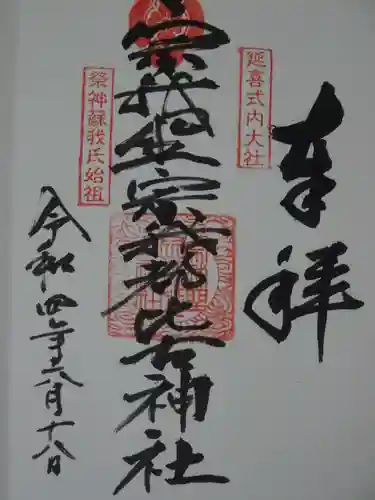 奉拝
延喜式内大社
宗我坐宗我都比古神社
祭神蘇我氏始祖
令和四年六月十八日